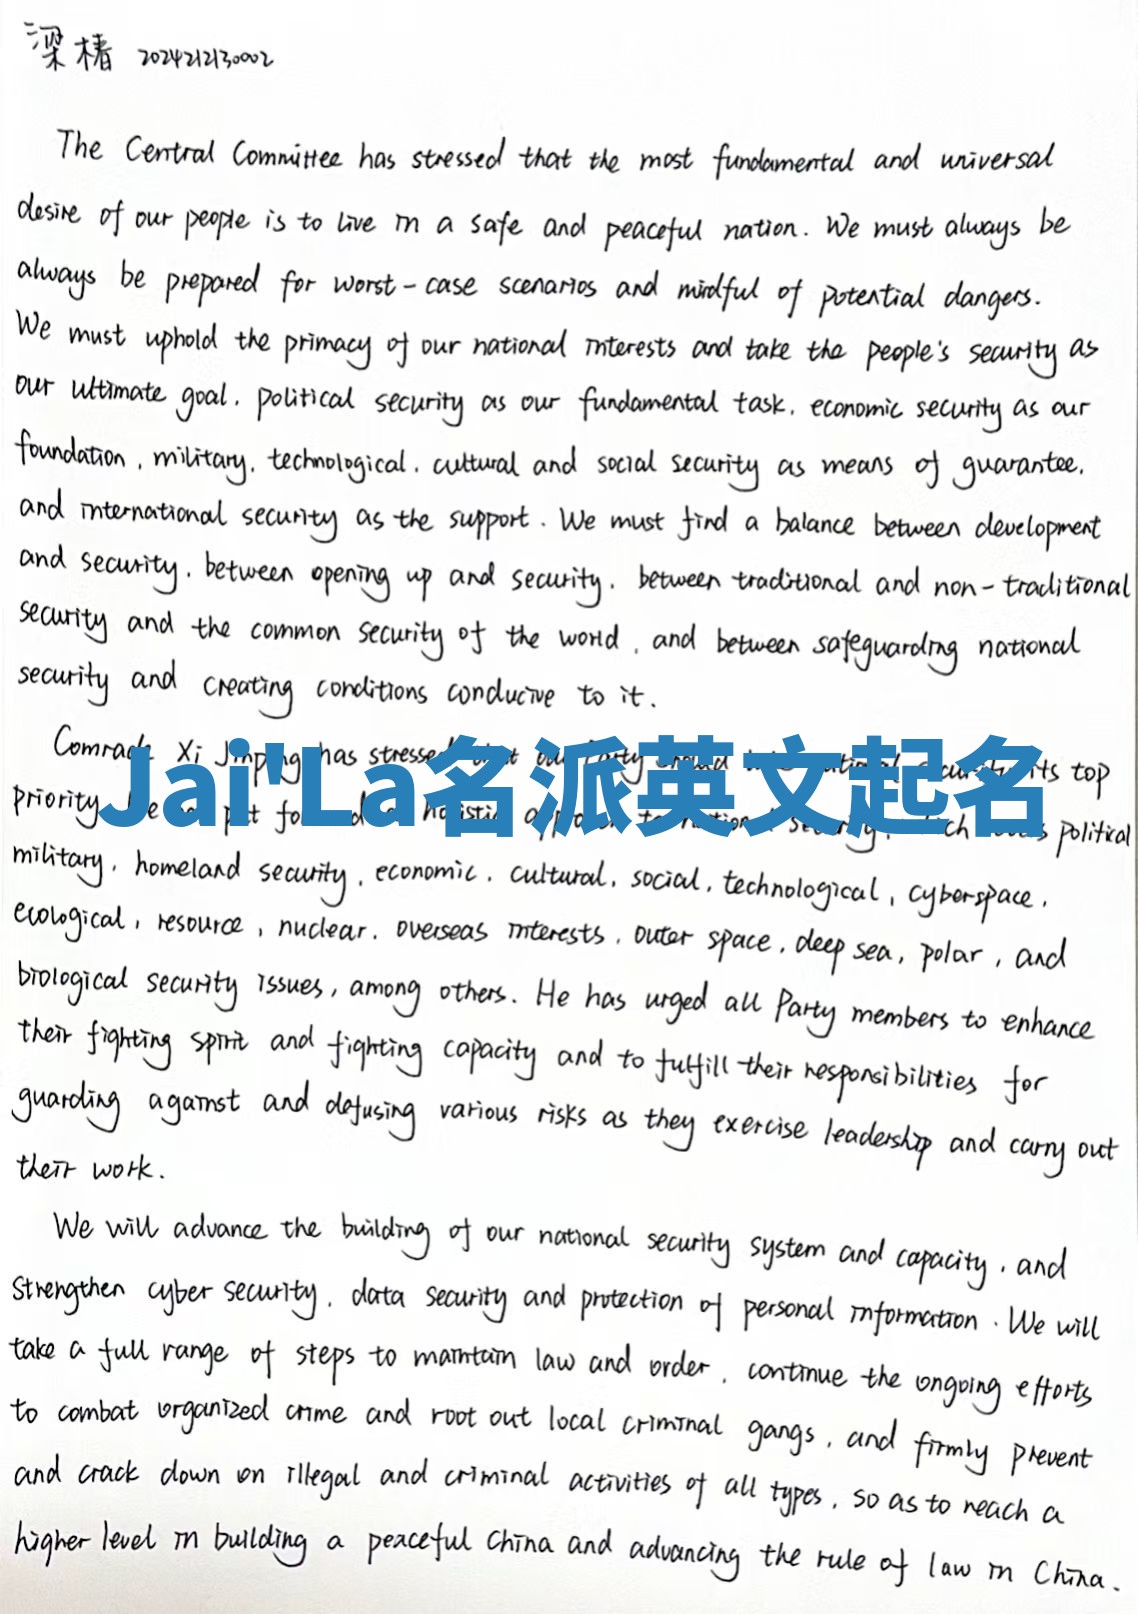 梁椿 2024212130002
The Central Committee has stressed that the most fundamental and universal
desire of our people is to live in a safe and peaceful nation. We must always be
always be prepared for worst-case scenarios and mindful of potential dangers.
We must uphold the primacy of our national interests and take the people's security as
our ultimate goal, political security as our fundamental task, economic security as our
foundation, military, technological, cultural and social security as means of guarantee,
and international security as the support. We must find a balance between development
and security, between opening up and security, between traditional and non-traditional
security and the common security of the world, and between safeguarding national
security and creating conditions conducive to it.
Comrade Xi Jinping has stressed its top
Jai'La名派英文起名
priority political
military, homeland security, economic, cultural, social, technological, cyberspace,
ecological, resource, nuclear, overseas interests, outer space, deep sea, polar, and
biological security issues, among others. He has urged all Party members to enhance
their fighting spirit and fighting capacity and to fulfill their responsibilities for
guarding against and defusing various risks as they exercise leadership and carry out
their work.
We will advance the building of our national security system and capacity, and
strengthen cyber security, data security and protection of personal information. We will
take a full range of steps to maintain law and order, continue the ongoing efforts
to combat organized crime and root out local criminal gangs, and firmly prevent
and crack down on illegal and criminal activities of all types, so as to reach a
higher level in building a peaceful China and advancing the rule of law in China.